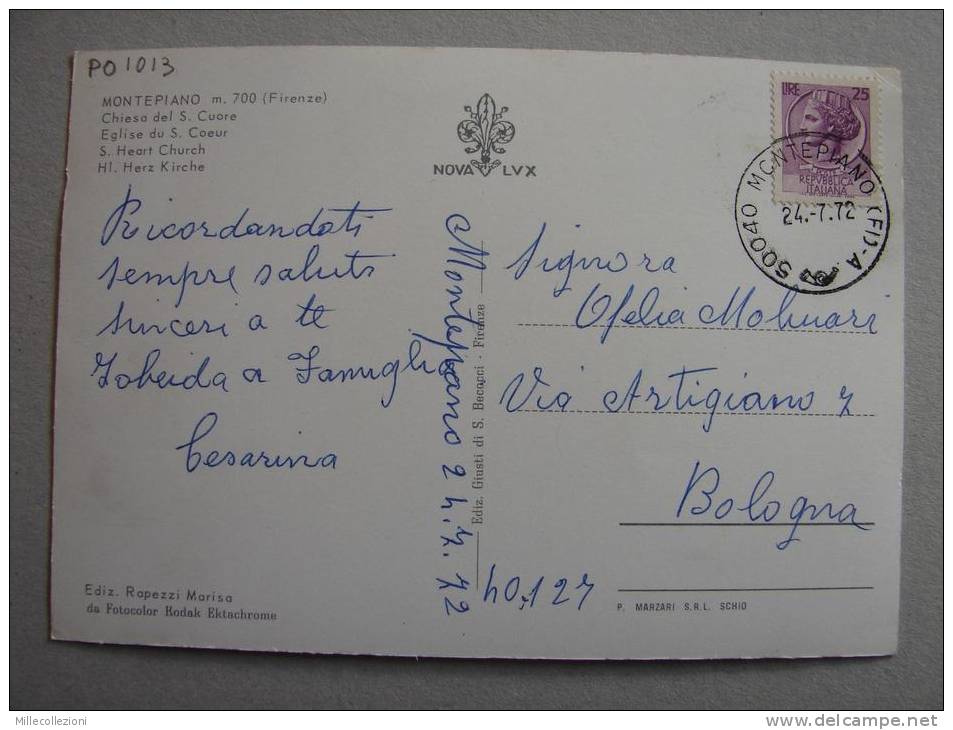 PO1013
MONTEPIANO m. 700 (Firenze)
Chiesa del S. Cuore
Eglise du S. Coeur
S. Heart Church
Hl. Herz Kirche
NOVA LVX
LIRE 25
REPVBBLICA
ITALIANA
50040 MONTEPIANO (FI)-A
24.-7.72
Ricordandoti
sempre saluti
sinceri a te
Zobeida a Famiglia
Cesarina
Montepiano 24.7.72
Ediz. Giusti di S. Becocci - Firenze
Signora
Ofelia Molinari
Via Artigiano 7
Bologna
40.127
Ediz. Rapezzi Marisa
da Fotocolor Kodak Ektachrome
P. MARZARI S.R.L. SCHIO
Millecollezioni
www.delcampe.net